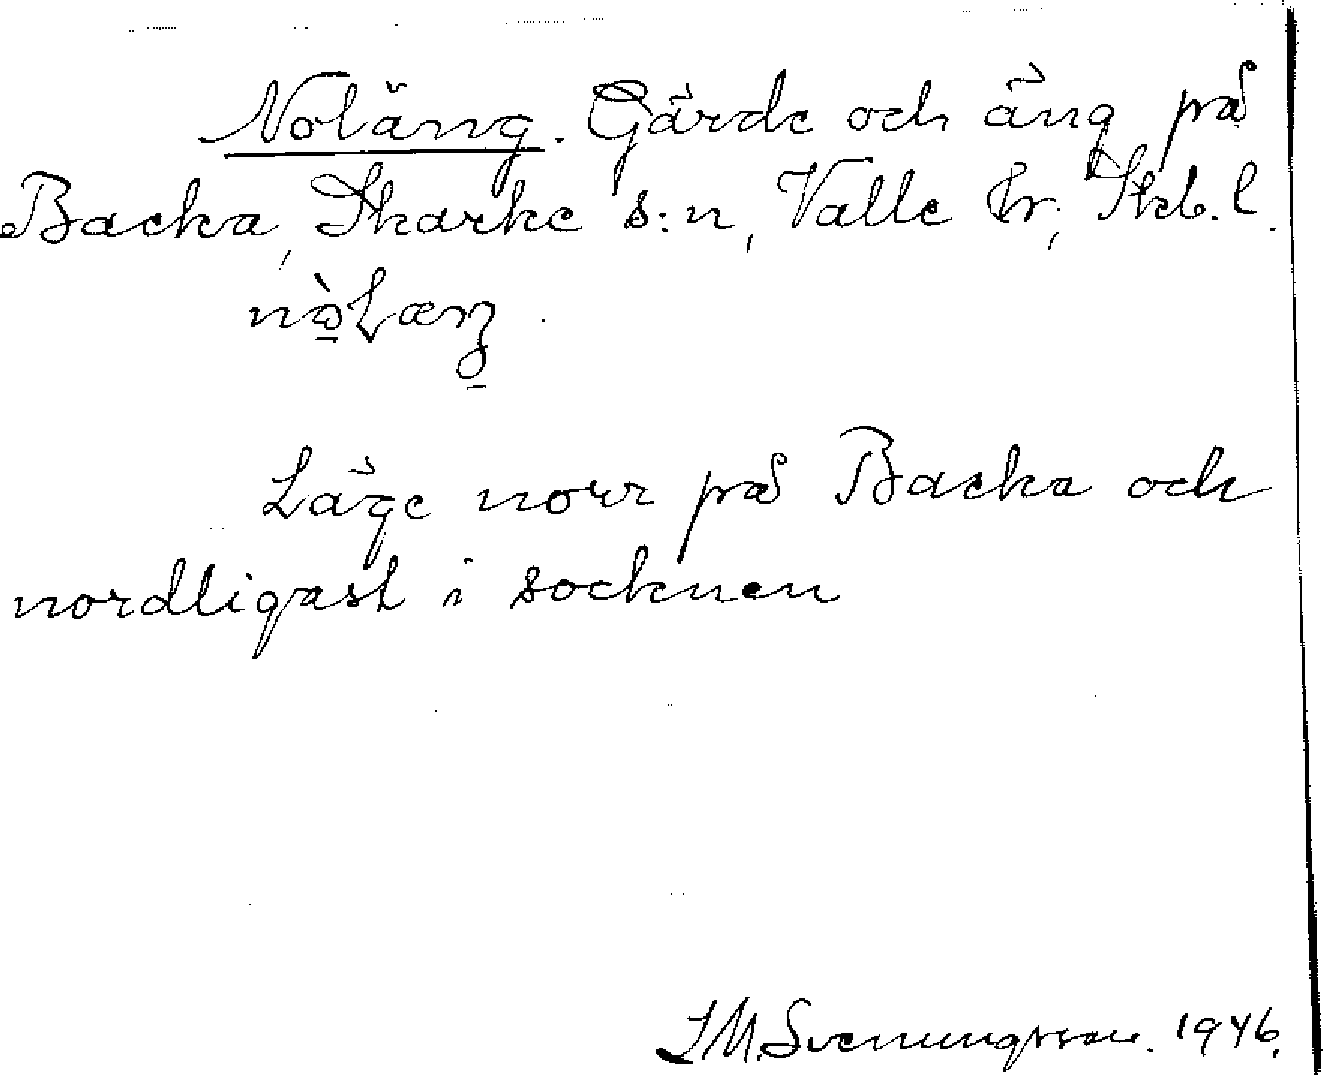 Noläng. Gärde och äng på
Backa, Skarke s:n, Valle hr, Skb. l.
Läge norr på Backa och
nordligast i socknen
I M. Svenungsson. 1946.